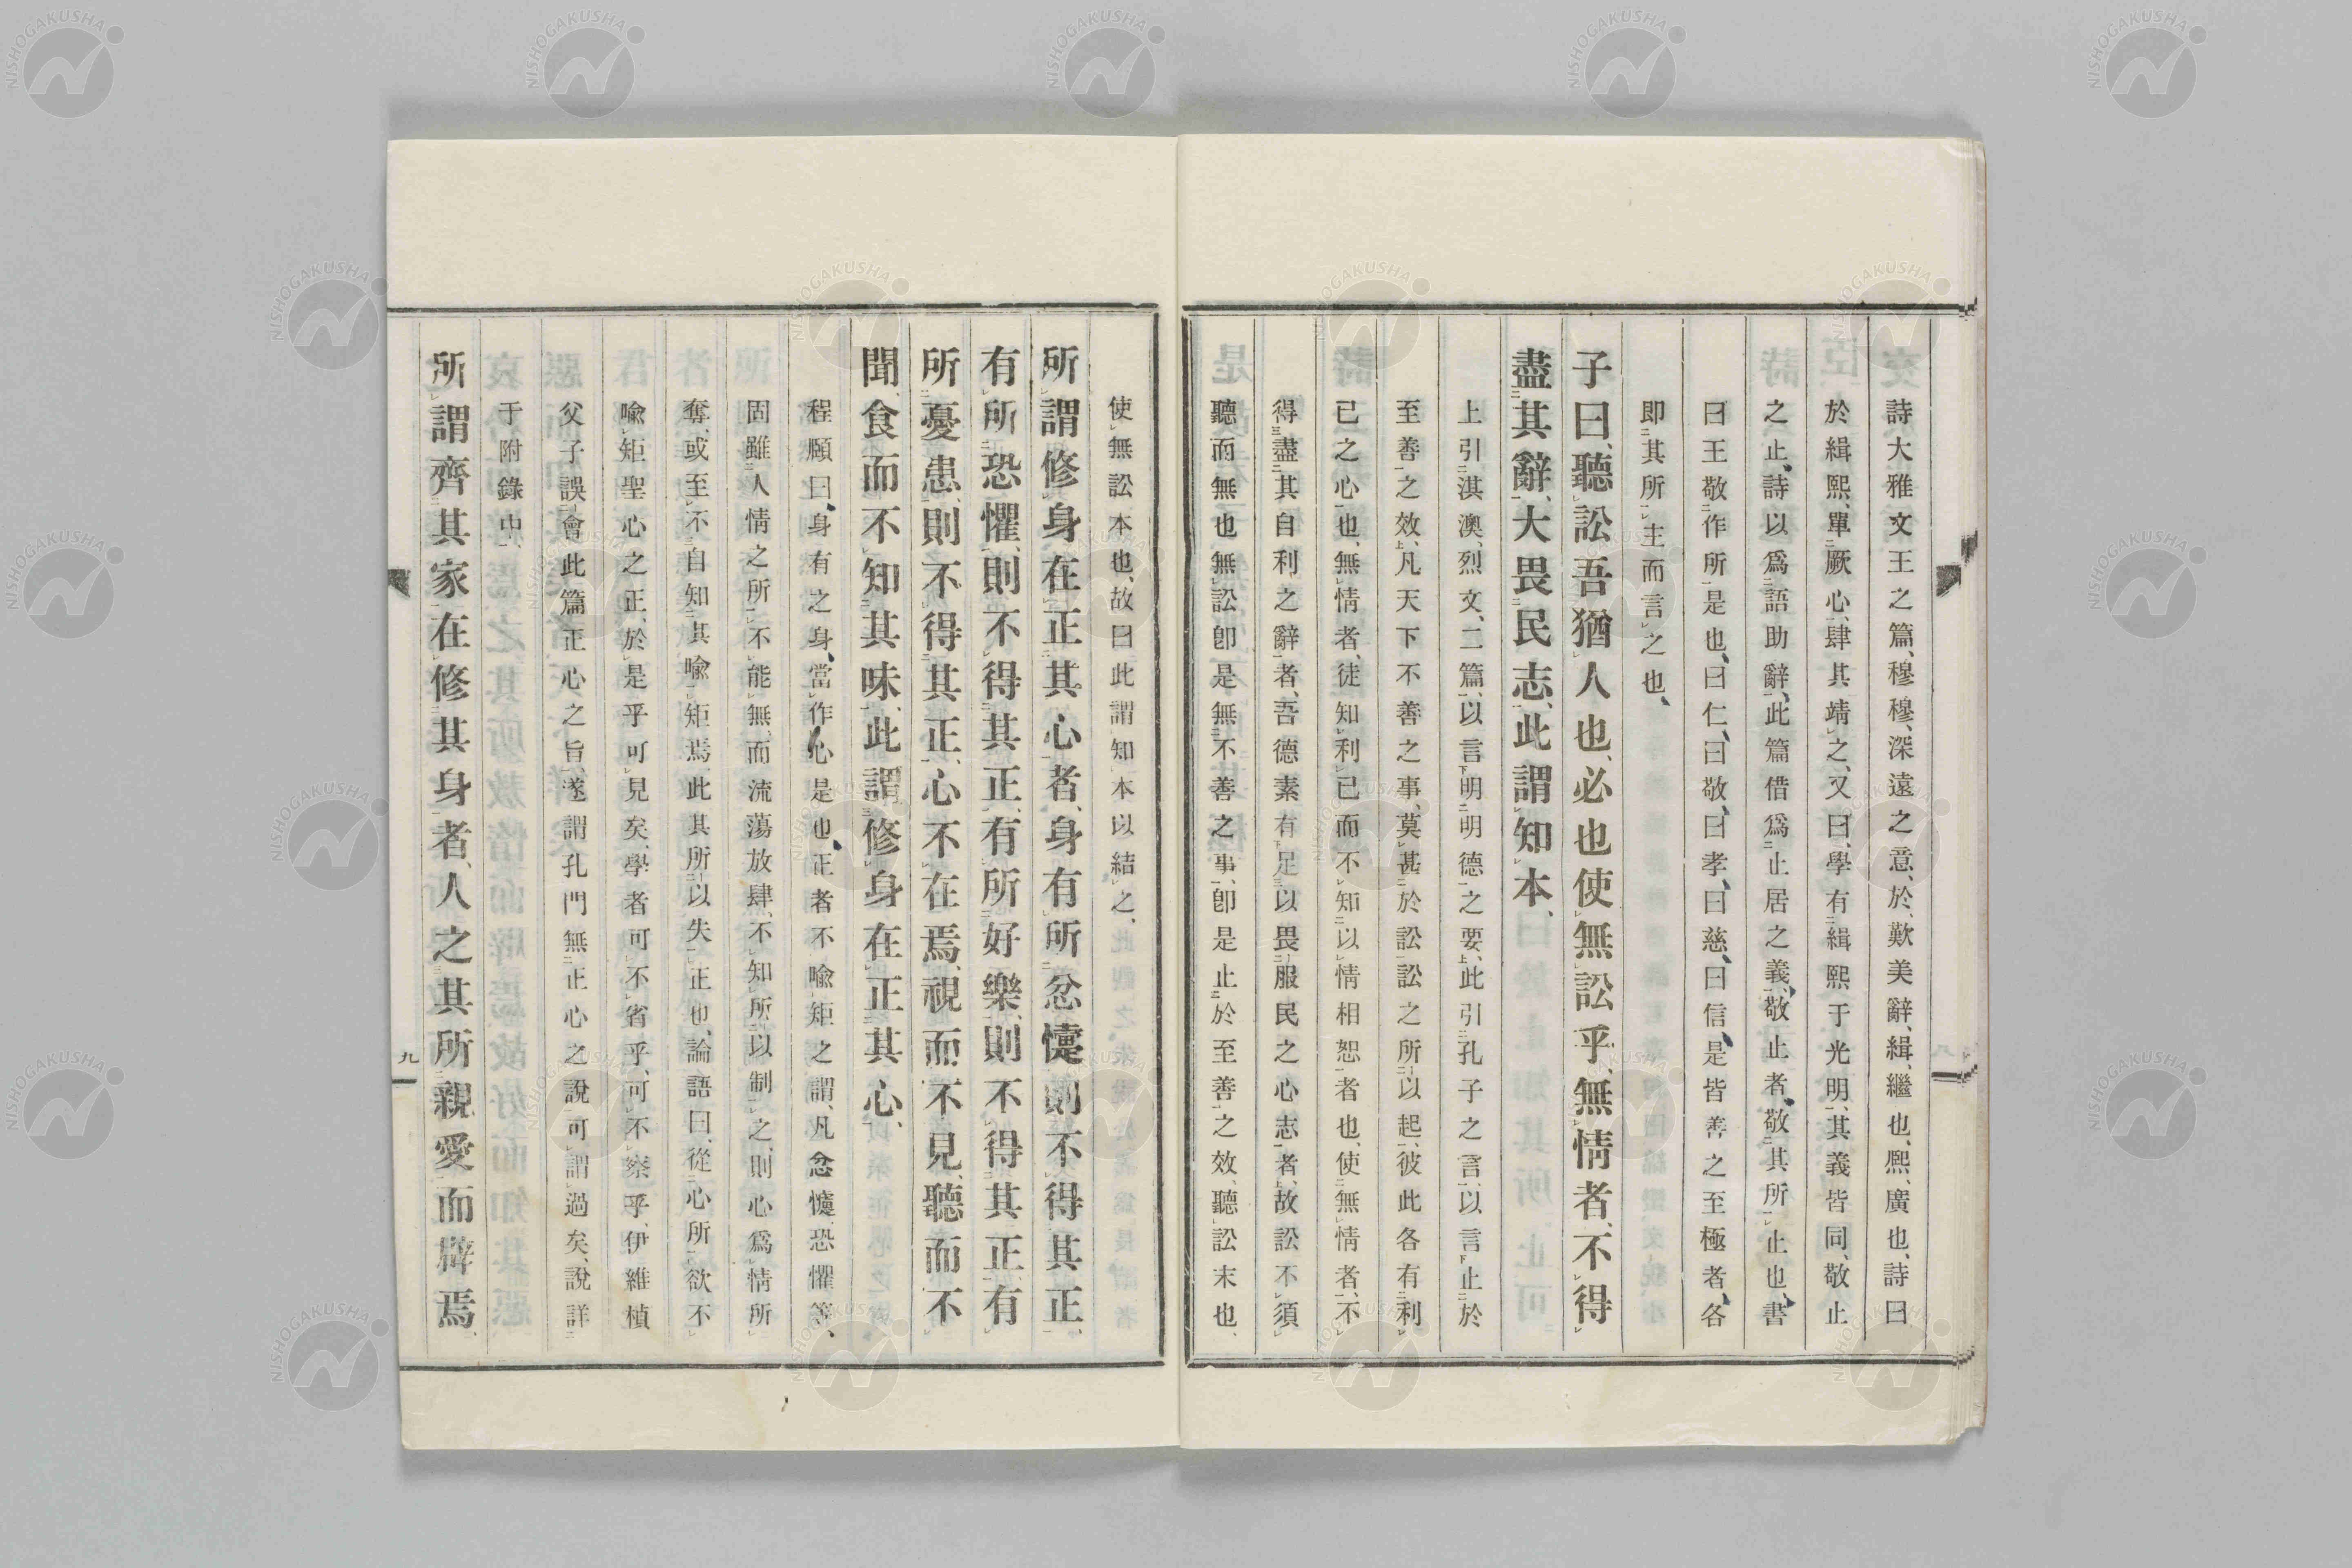 詩大雅文王之篇、穆穆、深遠之意、於、歎美辭、緝、繼也、熙、廣也、詩曰
於緝熙、單厥心、肆其靖之、又曰、學有緝熙于光明、其義皆同、敬止
之止、詩以爲語助辭、此篇借爲止居之義、敬止者、敬其所止也、書
曰王敬作所是也、曰仁、曰敬、曰孝、曰慈、曰信、是皆善之至極者、各
卽其所主而言之也、
子曰、聽訟吾猶人也、必也使無訟乎、無情者、不得
盡其辭、大畏民志、此謂知本、
上引淇澳、烈文、二篇、以言明明德之要、此引孔子之言、以言止於
至善之效、凡天下不善之事、莫甚於訟、訟之所以起、彼此各有利
己之心也、無情者、徒知利己、而不知以情相恕者也、使無情者、不
得盡其自利之辭者、吾德素有足以畏服民之心志者、故訟不須
聽而無也、無訟卽是無不善之事、卽是止於至善之效、聽訟末也、
使無訟本也、故曰此謂知本以結之、
所謂修身在正其心者、身有所忿懥、則不得其正、
有所恐懼、則不得其正、有所好樂、則不得其正、有
所憂患、則不得其正、心不在焉、視而不見、聽而不
聞、食而不知其味、此謂修身在正其心、
程頤曰、身有之身、當作心是也、正者不喩矩之謂、凡忿懥、恐懼等、
固雖人情之所不能無、而流蕩放肆、不知所以制之、則心爲情所
奪、或至不自知其喩矩焉、此其所以失正也、論語曰、從心所欲不
喩矩、聖心之正、於是乎可見矣、學者可不省乎、可不察乎、伊維楨
父子誤會此篇正心之旨、遂謂孔門無正心之說、可謂過矣、說詳
于附錄中、
所謂齊其家在修其身者、人之其所親愛而辟焉、
九